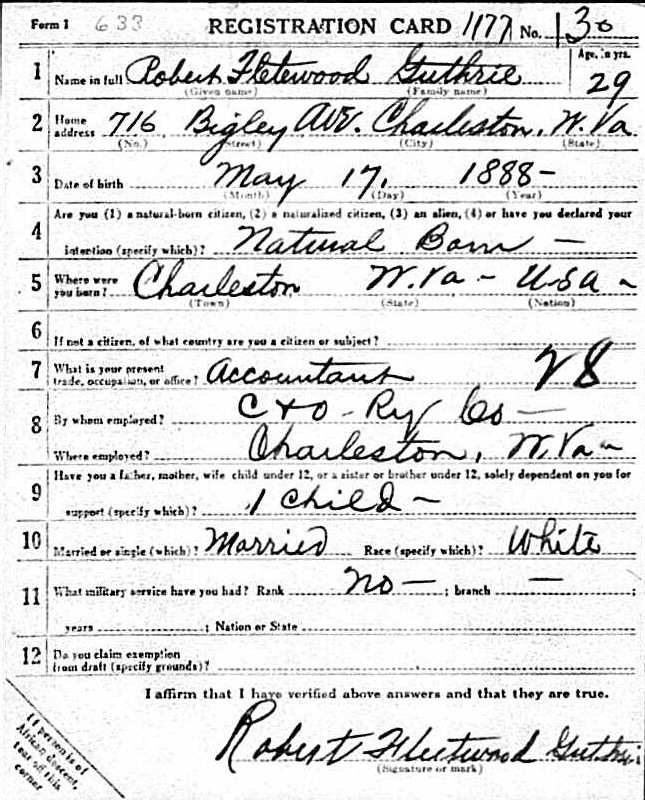 Form 1 633 REGISTRATION CARD 1177 No. 130
1 Name in full Robert Fletewood Guthrie Age, in yrs. 29
(Given name) (Family name)
2 Home address 716 Bigley Ave. Charleston, W. Va
(No.) (Street) (City) (State)
3 Date of birth May 17, 1888 -
(Month) (Day) (Year)
4 Are you (1) a natural-born citizen, (2) a naturalized citizen, (3) an alien, (4) or have you declared your
intention (specify which)? Natural Born -
5 Where were you born? Charleston W. Va - USA -
(Town) (State) (Nation)
6 If not a citizen, of what country are you a citizen or subject?
7 What is your present
trade, occupation, or office? Accountant 28
8 By whom employed? C + O - Ry Co -
Where employed? Charleston, W. Va -
9 Have you a father, mother, wife child under 12, or a sister or brother under 12, solely dependent on you for
support (specify which)? 1 child -
10 Married or single (which)? Married Race (specify which)? White
11 What military service have you had? Rank no - ; branch - ;
years ; Nation or State
12 Do you claim exemption
from draft (specify grounds)?
I affirm that I have verified above answers and that they are true.
Robert Fleetwood Guthrie
(Signature or mark)
If person is of
African descent,
tear off this
corner